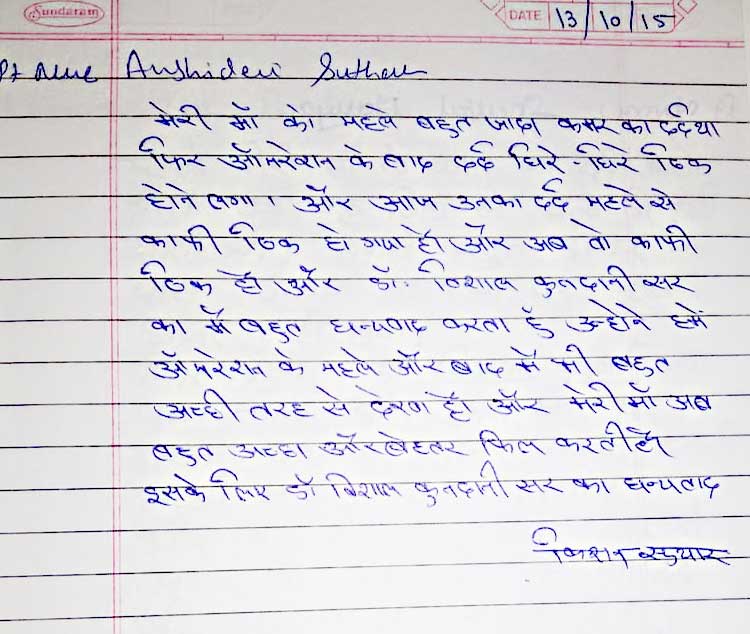 Sundaram
DATE 13/10/15
Pt Name Anshidevi Suthar
मेरी माँ को पहले बहुत जादा कमर का दर्द था
फिर ऑपरेशन के बाद दर्द धिरे-धिरे ठिक
होने लगा। और आज उनका दर्द पहले से
काफी ठिक हो गया हैं और अब वो काफी
ठिक हैं और डॉ. विशाल कुनदानी सर
का मैं बहुत धन्यवाद करता हुँ उन्होने हमें
ऑपरेशन के पहले और बाद में भी बहुत
अच्छी तरह से देखा हैं और मेरी माँ अब
बहुत अच्छा और बेहतर फिल करती हैं
इसके लिए डॉ विशाल कुनदानी सर का धन्यवाद
सुथार